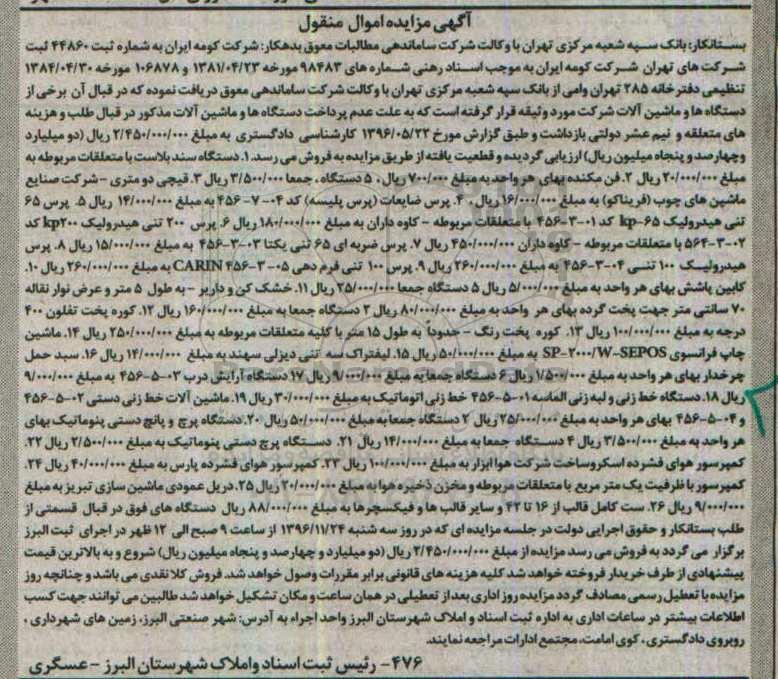 آگهی مزایده اموال منقول
بستانکار: بانک سپه شعبه مرکزی تهران با وکالت شرکت ساماندهی مطالبات معوق بدهکار: شرکت کومه ایران به شماره ثبت ۴۴۸۶۰ ثبت
شرکت های تهران شرکت کومه ایران به موجب اسناد رهنی شماره های ۹۸۴۸۳ مورخه ۱۳۸۱/۰۴/۲۳ و ۱۰۶۸۷۸ مورخه ۱۳۸۴/۰۴/۳۰
تنظیمی دفترخانه ۲۸۵ تهران وامی از بانک سپه شعبه مرکزی تهران با وکالت شرکت ساماندهی معوق دریافت نموده که در قبال آن برخی از
دستگاه ها و ماشین آلات شرکت مورد وثیقه قرار گرفته است که به علت عدم پرداخت دستگاه ها و ماشین آلات مذکور در قبال طلب و هزینه
های متعلقه و نیم عشر دولتی بازداشت و طبق گزارش مورخ ۱۳۹۶/۰۵/۲۲ کارشناسی دادگستری به مبلغ ۲/۴۵۰/۰۰۰/۰۰۰ ریال (دو میلیارد
و چهارصد و پنجاه میلیون ریال) ارزیابی گردیده و قطعیت یافته از طریق مزایده به فروش می رسد. ۱. دستگاه سند بلاست با متعلقات مربوطه به
مبلغ ۲۰/۰۰۰/۰۰۰ ریال ۲. فن مکنده بهای هر واحد به مبلغ ۷۰۰/۰۰۰ ریال، ۵ دستگاه، جمعا ۳/۵۰۰/۰۰۰ ریال ۳. قیچی دو متری - شرکت صنایع
ماشین های چوب (فریناکو) به مبلغ ۱۶/۰۰۰/۰۰۰ ریال، ۴. پرس ضایعات (پرس پلیسه) کد ۰۴-۷-۴۵۶ به مبلغ ۱۴/۰۰۰/۰۰۰ ریال ۵. پرس ۶۵
تنی هیدرولیک kp-۶۵ کد ۰۱-۳-۴۵۶ با متعلقات مربوطه - کاوه داران به مبلغ ۱۸۰/۰۰۰/۰۰۰ ریال ۶. پرس ۲۰۰ تنی هیدرولیک kp۲۰۰ کد
۰۲-۳-۵۶۴ با متعلقات مربوطه - کاوه داران ۴۵۰/۰۰۰/۰۰۰ ریال ۷. پرس ضربه ای ۶۵ تنی یکتا ۰۳-۳-۴۵۶ به مبلغ ۱۵/۰۰۰/۰۰۰ ریال ۸. پرس
هیدرولیک ۱۰۰ تنی ۰۴-۳-۴۵۶ به مبلغ ۲۶۰/۰۰۰/۰۰۰ ریال ۹. پرس ۱۰۰ تنی فرم دهی CARIN ۴۵۶-۳-۰۵ به مبلغ ۲۶۰/۰۰۰/۰۰۰ ریال ۱۰.
کابین پاشش بهای هر واحد به مبلغ ۵/۰۰۰/۰۰۰ ریال ۵ دستگاه جمعا ۲۵/۰۰۰/۰۰۰ ریال ۱۱. خشک کن و داربر - به طول ۵ متر و عرض نوار نقاله
۷۰ سانتی متر جهت پخت گرده بهای هر واحد به مبلغ ۸۰/۰۰۰/۰۰۰ ریال ۲ دستگاه جمعا به مبلغ ۱۶۰/۰۰۰/۰۰۰ ریال ۱۲. کوره پخت تفلون ۴۰۰
درجه به مبلغ ۱۰۰/۰۰۰/۰۰۰ ریال ۱۳. کوره پخت رنگ - حدوداً به طول ۱۵ متر با کلیه متعلقات مربوطه به مبلغ ۲۵۰/۰۰۰/۰۰۰ ریال ۱۴. ماشین
چاپ فرانسوی SP-۲۰۰۰/W-SEPOS به مبلغ ۵۰/۰۰۰/۰۰۰ ریال ۱۵. لیفتراک سه تنی دیزلی سهند به مبلغ ۱۴/۰۰۰/۰۰۰ ریال ۱۶. سبد حمل
چرخدار بهای هر واحد به مبلغ ۱/۵۰۰/۰۰۰ ریال ۶ دستگاه جمعا به مبلغ ۹/۰۰۰/۰۰۰ ریال ۱۷ دستگاه آرایش درب ۰۳-۵-۴۵۶ به مبلغ ۹/۰۰۰/۰۰۰
ریال ۱۸. دستگاه خط زنی و لبه زنی الماسه ۰۱-۵-۴۵۶ خط زنی اتوماتیک به مبلغ ۳۰/۰۰۰/۰۰۰ ریال ۱۹. ماشین آلات خط زنی دستی ۰۲-۵-۴۵۶
و ۰۴-۵-۴۵۶ بهای هر واحد به مبلغ ۲۵/۰۰۰/۰۰۰ ریال ۲ دستگاه جمعا به مبلغ ۵۰/۰۰۰/۰۰۰ ریال ۲۰. دستگاه پرچ و پانچ دستی پنوماتیک بهای
هر واحد به مبلغ ۳/۵۰۰/۰۰۰ ریال ۴ دستگاه جمعا به مبلغ ۱۴/۰۰۰/۰۰۰ ریال ۲۱. دستگاه پرچ دستی پنوماتیک به مبلغ ۲/۵۰۰/۰۰۰ ریال ۲۲.
کمپرسور هوای فشرده اسکرو ساخت شرکت هوا ابزار به مبلغ ۱۰۰/۰۰۰/۰۰۰ ریال ۲۳. کمپرسور هوای فشرده پارس به مبلغ ۴۰/۰۰۰/۰۰۰ ریال ۲۴.
کمپرسور با ظرفیت یک متر مربع با متعلقات مربوطه و مخزن ذخیره هوا به مبلغ ۲۰/۰۰۰/۰۰۰ ریال ۲۵. دریل عمودی ماشین سازی تبریز به مبلغ
۹/۰۰۰/۰۰۰ ریال ۲۶. ست کامل قالب از ۱۶ تا ۴۲ و سایر قالب ها و فیکسچرها به مبلغ ۸۸/۰۰۰/۰۰۰ ریال دستگاه های فوق در قبال قسمتی از
طلب بستانکار و حقوق اجرایی دولت در جلسه مزایده ای که در روز سه شنبه ۱۳۹۶/۱۱/۲۴ از ساعت ۹ صبح الی ۱۲ ظهر در اجرای ثبت البرز
برگزار می گردد به فروش می رسد مزایده از مبلغ ۲/۴۵۰/۰۰۰/۰۰۰ ریال (دو میلیارد و چهارصد و پنجاه میلیون ریال) شروع و به بالاترین قیمت
پیشنهادی از طرف خریدار فروخته خواهد شد کلیه هزینه های قانونی برابر مقررات وصول خواهد شد. فروش کلا نقدی می باشد و چنانچه روز
مزایده با تعطیل رسمی مصادف گردد مزایده روز اداری بعد از تعطیلی در همان ساعت و مکان تشکیل خواهد شد طالبین می توانند جهت کسب
اطلاعات بیشتر در ساعات اداری به اداره ثبت اسناد و املاک شهرستان البرز واحد اجراء به آدرس: شهر صنعتی البرز، زمین های شهرداری،
روبروی دادگستری، کوی امامت، مجتمع ادارات مراجعه نمایند.
۴۷۶- رئیس ثبت اسناد و املاک شهرستان البرز - عسگری